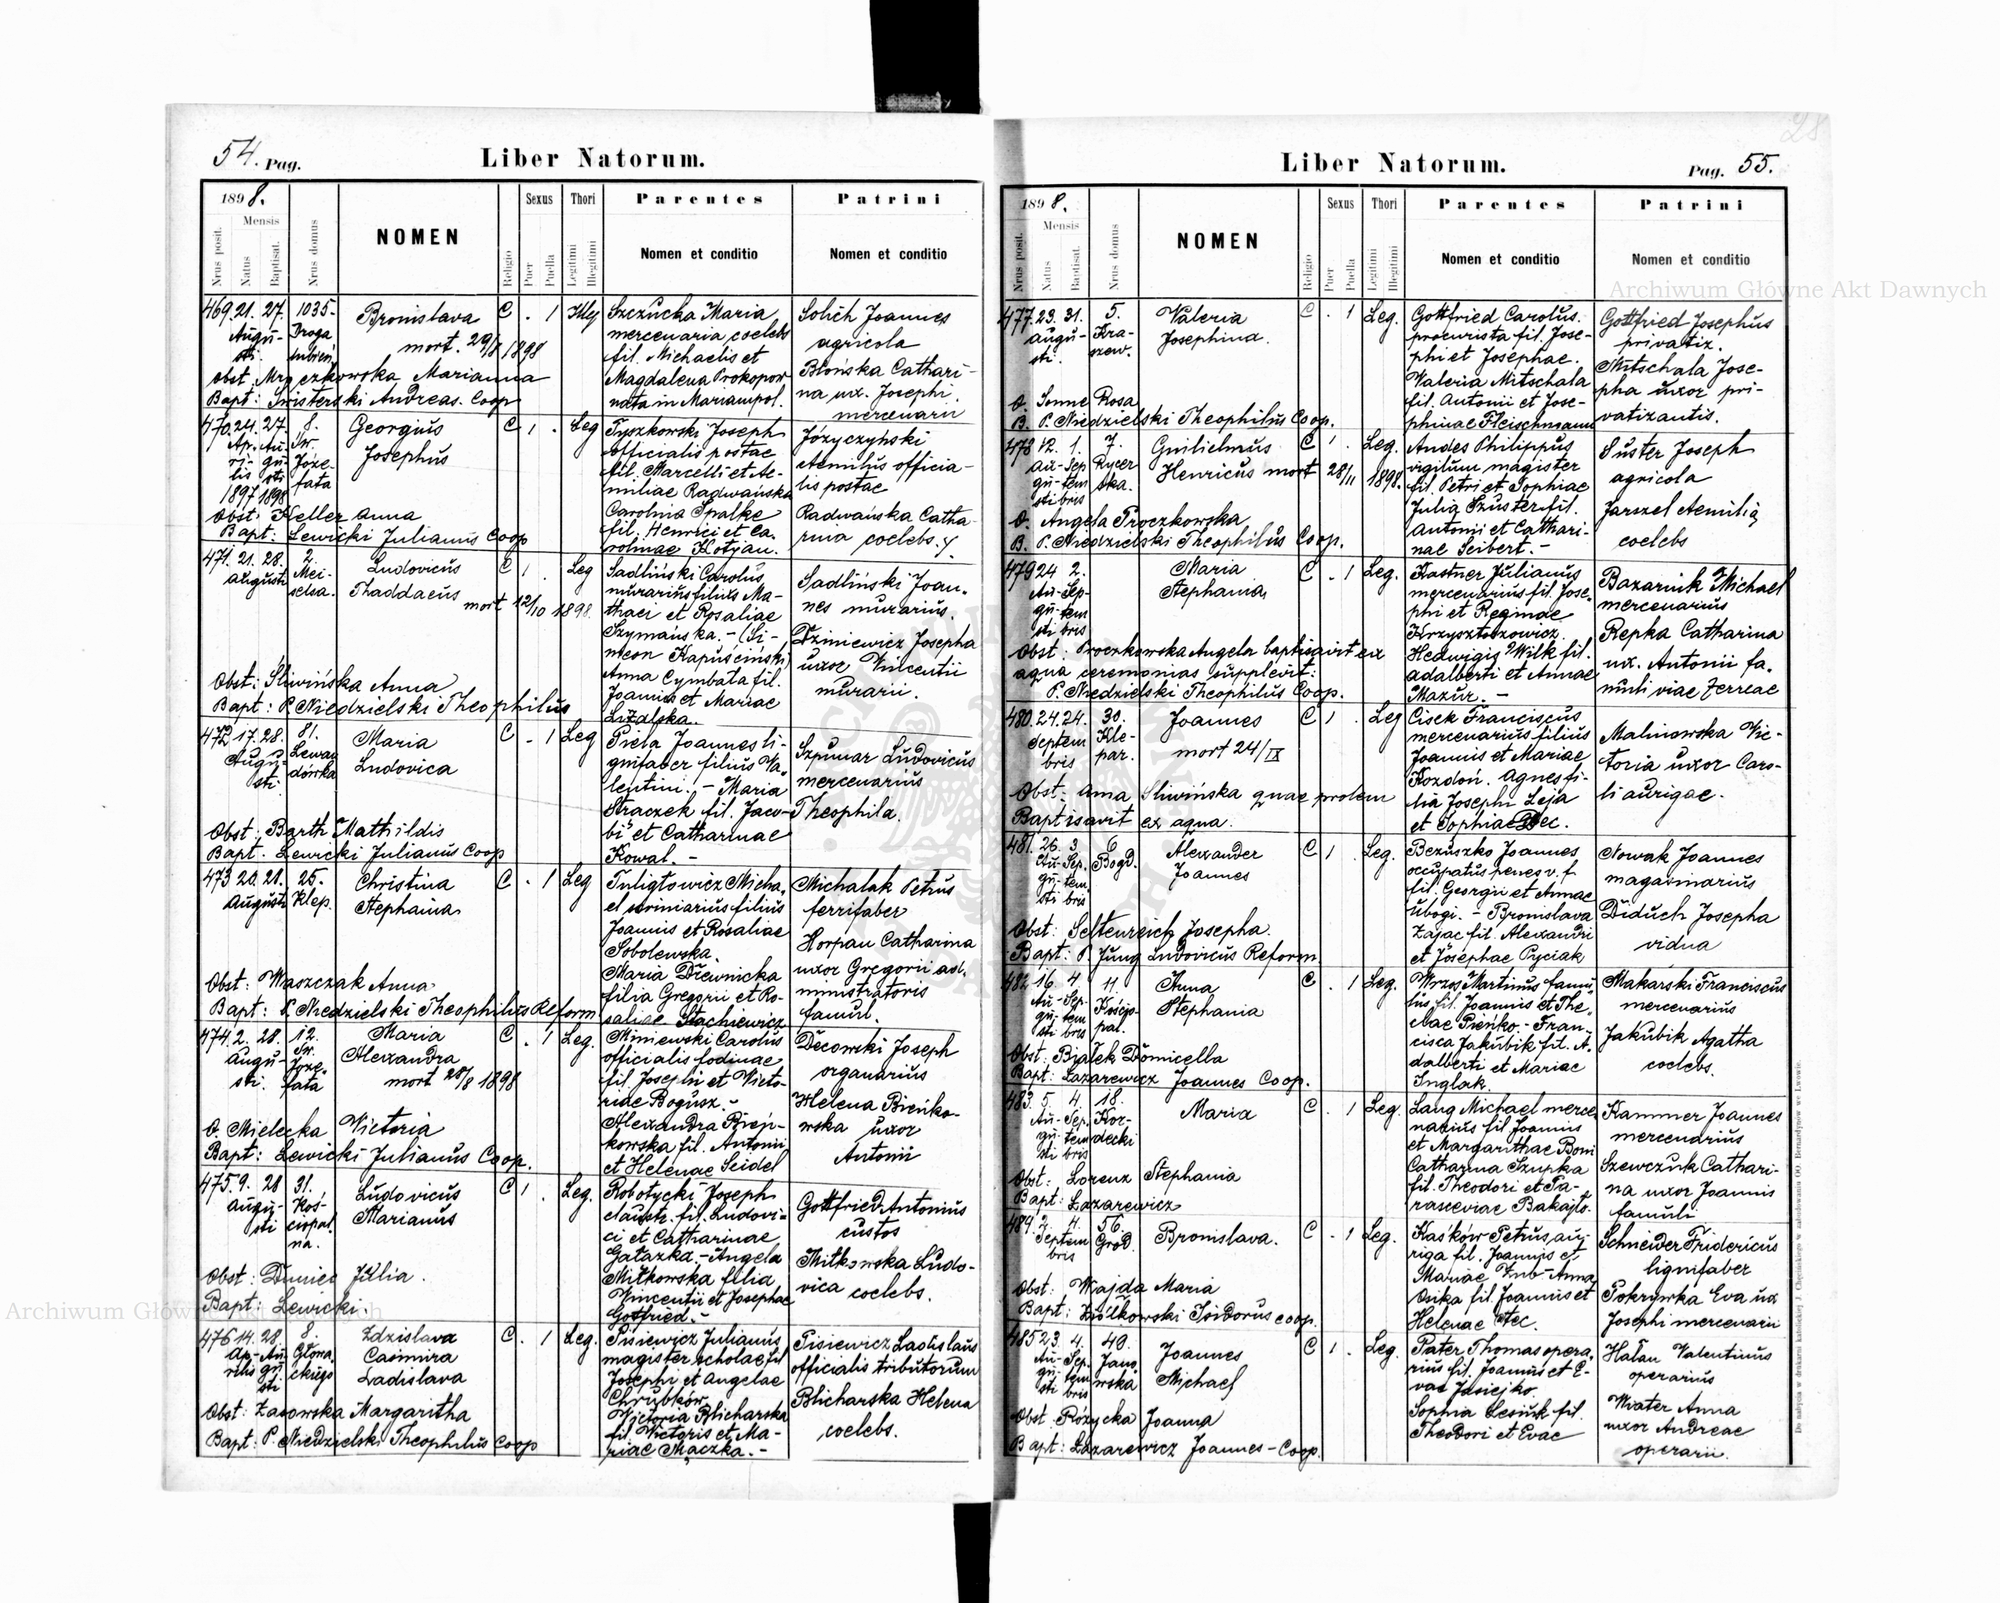 54. Pag.
Liber Natorum.
1898.
Nrus posit.
Mensis
Natus
Baptisat.
Nrus domus
NOMEN
Religio
Sexus
Puer
Puella
Thori
Legitimi
Illegitimi
Parentes
Nomen et conditio
Patrini
Nomen et conditio
469. 21. 27. Augusti.
1035. Droga
Bronislava
mort. 29/8 1898
C . 1
Szczucka Maria
mercenaria coelebs
fil. Michaelis et
Magdalena Prokopow
nata in Mariampol.
Solich Joannes
agricola
Błońska Cathari-
na ux. Josephi
mercenarii
Obst. Mryczkowska Marianna
Bapt: Andreas. Coop
470. 24. 27.
Aprilis Augusti
1897 1898
8. Św. Józefata
Georgius
Josephus
C 1 . Leg
Tyszkowski Joseph
officialis postae
fil. Marcelli et Ae-
miliae Radwańska
Carolina Spalke
fil. Henrici et Ca-
rolinae Kotjan.
Józyczyński
Aemilius officia-
lis postae
Radwańska Catha-
rina coelebs.
Obst. Keller Anna
Bapt: Lewicki Julianus Coop
471. 21. 28.
augusti
2. Meiselsa.
Ludovicus
Thaddaeus
mort 12/10 1898.
C 1 . Leg
Sadliński Carolus
murarius filius Ma-
thaei et Rosaliae
Szymańska. - (Si-
meon Kapuściński)
Anna Cymbała fil.
Joannis et Mariae
Liżalska.
Sadliński Joan-
nes murarius.
Dziniewicz Josepha
uxor Vincentii
murarii.
Obst: Śliwińska Anna
Bapt: P. Niedzielski Theophilus
472. 17. 28.
Augusti
81. Lewandówka
Maria
Ludovica
C . 1 Leg
Piela Joannes li-
gnifaber filius Va-
lentini. - Maria
Straczek fil. Jaco-
bi et Catharinae
Kowal. -
Szpunar Ludovicus
mercenarius
Theophila.
Obst: Barth Mathildis
Bapt. Lewicki Julianus Coop
473 20. 28.
Augusti
25. Klep.
Christina
Stephania
C . 1 Leg
Tuligłowicz Micha-
el scriniarius filius
Joannis et Rosaliae
Sobolewska.
Maria Drewnicka
filia Gregorii et Ro-
saliae Stachiewicz
Michalak Petrus
ferrifaber
Horpan Catharina
uxor Gregorii ad-
ministratoris
famul.
Obst: Waszczak Anna
Bapt: P. Niedzielski Theophilus Reform
474. 2. 28.
augusti.
12. Św. Józefata
Maria
Alexandra
mort 28/8 1898
C . 1 Leg.
Miniewski Carolus
officialis fodinae
fil. Josephi et Victo-
riae Bogusz. -
Alexandra Bień-
kowska fil. Antonii
et Helenae Seidel
Decowski Joseph
organarius
Helena Bieńko-
wska uxor
Antonii
O. Mielecka Victoria
Bapt: Lewicki Julianus Coop.
475. 9. 28
augusti
31. Kościopalna.
Ludovicus
Marianus
C 1 . Leg.
Robotycki Joseph
claustr. fil. Ludovi-
ci et Catharinae
Gałazka. - Angela
Miłkowska filia
Vincentii et Josephae
Gotfried. -
Gottfried Antonius
custos
Miłkowska Ludo-
vica coelebs.
Obst: Julia.
Bapt: Lewicki.
476 14. 28.
Aprilis Augusti
8. Głowackiego
Zdzislava
Casimira
Ladislava
C . 1 Leg.
Pisiewicz Julianus
magister scholae fil
Josephi et Angelae
Chrubków
Victoria Blicharska
fil. Victoris et Ma-
riae Mączka. -
Pisiewicz Ladislaus
officialis tributorum
Blicharska Helena
coelebs.
Obst: Zasowska Margaritha
Bapt: P. Niedzielski Theophilus Coop
28
Liber Natorum.
Pag. 55.
1898.
Nrus posit.
Mensis
Natus
Baptisat.
Nrus domus
NOMEN
Religio
Sexus
Puer
Puella
Thori
Legitimi
Illegitimi
Parentes
Nomen et conditio
Patrini
Nomen et conditio
477. 23. 31.
augusti.
5. Kraszew.
Valeria
Josephina.
C . 1 Leg.
Gottfried Carolus.
procurista fil. Jose-
phi et Josephae.
Valeria Mitschala
fil. Antonii et Jose-
phinae Fleischmann
Gottfried Josephus
privatiz.
Mitschala Jose-
pha uxor pri-
vatizantis.
O. Sonne Rosa
B. P. Niedzielski Theophilus Coop.
478 12. 1.
Augusti Septembris
7. Rycerska.
Guilielmus
Henricus mort 28/11 1898.
C 1 . Leg.
Andes Philippus
vigilum magister
fil. Petri et Sophiae
Julia Szuster fil.
Antonii et Cathari-
nae Seibert. -
Suster Joseph
agricola
Jarzel Aemilia
coelebs
O. Angela Proczkowska
B. P. Niedzielski Theophilus Coop.
479 24 2.
Augusti Septembris
Maria
Stephania
C . 1 Leg.
Kastner Julianus
mercenarius fil. Jose-
phi et Reginae
Krzysztoszowicz.
Hedwigis Wilk fil.
Adalberti et Annae
Mazur. -
Bazarnik Michael
mercenarius
Repka Catharina
ux. Antonii fa-
muli viae ferreae
Obst: Proczkowska Angela baptisavit ex
aqua ceremonias supplevit:
P. Niedzielski Theophilus Coop.
480. 24. 24.
Septembris
30. Klepar.
Joannes
mort 24/IX
C 1 . Leg
Cisek Franciscus
mercenarius filius
Joannis et Mariae
Kozdoń. Agnes fi-
lia Josephi Leja
et Sophiae Dec.
Malinowska Vic-
toria uxor Caro-
li aurigae.
Obst: Anna Sliwińska quae prolem
Baptisavit ex aqua.
481. 26. 3
Augusti Septembris
6 Bogd.
Alexander
Joannes
C 1 . Leg.
Bezuszko Joannes
occupatus penes v. f.
fil. Georgii et Annae
Ubogi. - Bronislava
Zając fil. Alexandri
et Josephae Pyciak
Nowak Joannes
magasinarius
Diduch Josepha
vidua
Obst: Seltenreich Josepha.
Bapt: P. Jung Ludovicus Reform.
482 16. 4
Augusti Septembris
11.
Anna
Stephania
C . 1 Leg.
Wrzos Martinus famu-
lus fil. Joannis et The-
clae Pieńko. - Fran-
cisca Jakubik fil. A-
dalberti et Mariae
Inglak.
Makarski Franciscus
mercenarius
Jakubik Agatha
coelebs.
Obst: Białek Domicella
Bapt: Lazarewicz Joannes Coop.
483. 5. 4.
Augusti Septembris
18. Kordecki
Maria
C . 1 Leg.
Lang Michael merce
narius fil. Joannis
et Margarithae Boni
Catharina Szupka
fil. Theodori et Pa-
rasceviae Bakajło.
Kammer Joannes
mercenarius
Szewczuk Cathari-
na uxor Joannis
famuli
Obst: Lorenz Stephania
Bapt: Lazarewicz
484. 2. 4.
Septembris
56. Grod.
Bronislava.
C . 1 Leg.
Kaśków Petrus au-
riga fil. Joannis et
Mariae Zub - Anna
Osika fil. Joannis et
Helenae Dec.
Schneider Fridericus
lignifaber
Pokrywka Eva ux
Josephi mercenarii
Obst: Wajda Maria
Bapt: Ziółkowski Isidorus coop.
485 23. 4.
Augusti Septembris
49. Janowska
Joannes
Michael
C 1 . Leg.
Pater Thomas opera-
rius fil. Joannis et E-
vae Jasiejko.
Sophia Lesiuk fil.
Theodori et Evae
Hałan Valentinus
operarius
Water Anna
uxor Andreae
operarii.
Obst. Różycka Joanna
Bapt: Lazarewicz Joannes - Coop.
Do nabycia w drukarni katolickiej J. Chęcińskiego w zabudowaniu OO. Bernardynów we Lwowie.
Archiwum Główne Akt Dawnych
Archiwum Główne Akt Dawnych